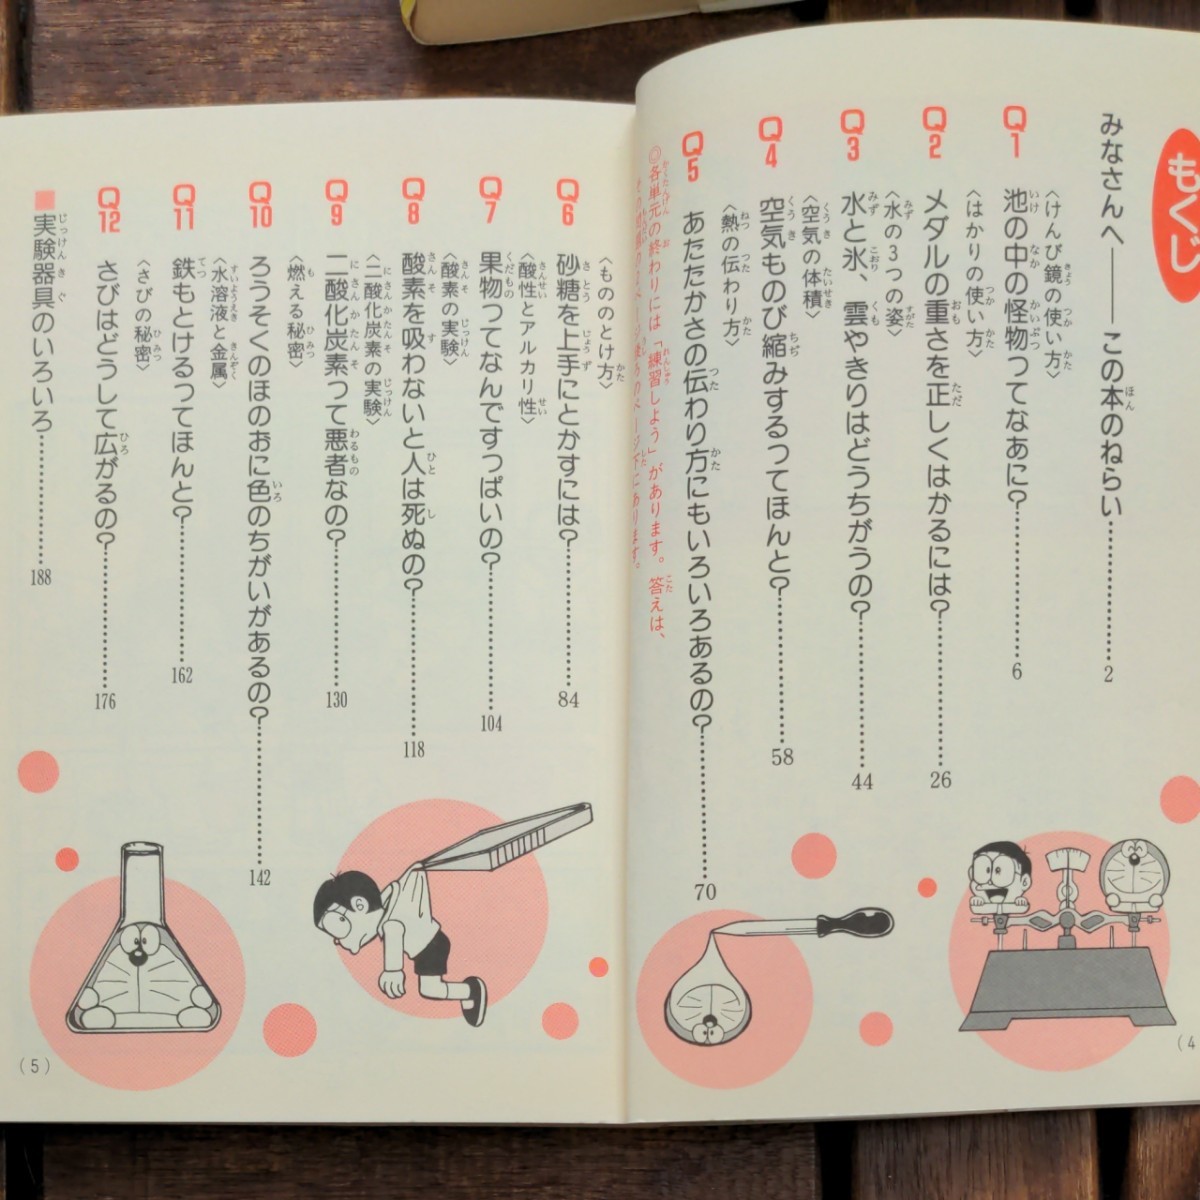 もくじ
みなさんへ――この本のねらい…………2
〈けんび鏡の使い方〉
Q1 池の中の怪物ってなあに?…………6
〈はかりの使い方〉
Q2 メダルの重さを正しくはかるには?…………26
〈水の3つの姿〉
Q3 水と氷、雲やきりはどうちがうの?…………44
〈空気の体積〉
Q4 空気ものび縮みするってほんと?…………58
〈熱の伝わり方〉
Q5 あたたかさの伝わり方にもいろいろあるの?…………70
◎各単元の終わりには「練習しよう」があります。答えは、
(4
〈もののとけ方〉
Q6 砂糖を上手にとかすには?…………84
〈酸性とアルカリ性〉
Q7 果物ってなんですっぱいの?…………104
〈酸素の実験〉
Q8 酸素を吸わないと人は死ぬの?…………118
〈二酸化炭素の実験〉
Q9 二酸化炭素って悪者なの?…………130
〈燃える秘密〉
Q10 ろうそくのほのおに色のちがいがあるの?…………142
〈水溶液と金属〉
Q11 鉄もとけるってほんと?…………162
〈さびの秘密〉
Q12 さびはどうして広がるの?…………176
■実験器具のいろいろ…………188
(5)